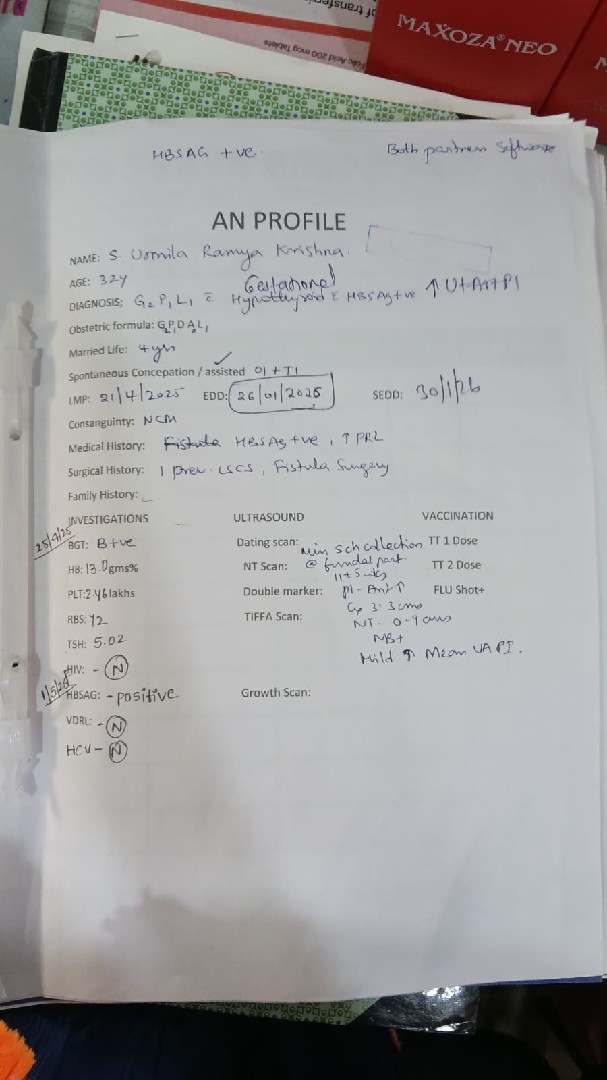 of transfer
Folic Acid 200 mcg Tablets
MAXOZA® NEO
M
HBSAG +ve
Both partners Software
AN PROFILE
NAME: S. Urmila Ramya Krishna
AGE: 32y
Gestational
DIAGNOSIS: G2 P1 L1 c Hypothyroid c HBSAg+ve ↑ Ut Art PI
Obstetric formula: G2P1DA0L1
Married Life: 4 yrs
Spontaneous Concepation / assisted OI + TI
LMP: 21/4/2025 EDD: 26/01/2025 SEDD: 30/1/26
Consanguinty: NCM
Medical History: Fistula HBSAg +ve, ↑ PRL
Surgical History: 1 prev. LSCS, Fistula Surgery
Family History: -
INVESTIGATIONS ULTRASOUND VACCINATION
25/9/25
BGT: B+ve Dating scan: Min sch collection TT 1 Dose
HB: 13.0 gms% NT Scan: @ fundal part TT 2 Dose
11+5 wks
PLT: 2.46 lakhs Double marker: pl - Ant ↑ FLU Shot+
Cx 3.3 cms
RBS: 72 TIFFA Scan: NT - 0.9 cms
NB+
TSH: 5.02 Mild ↑ Mean UA PI.
HIV: - N
1/5/25
HBSAG: - positive Growth Scan:
VDRL: - N
HCV - N